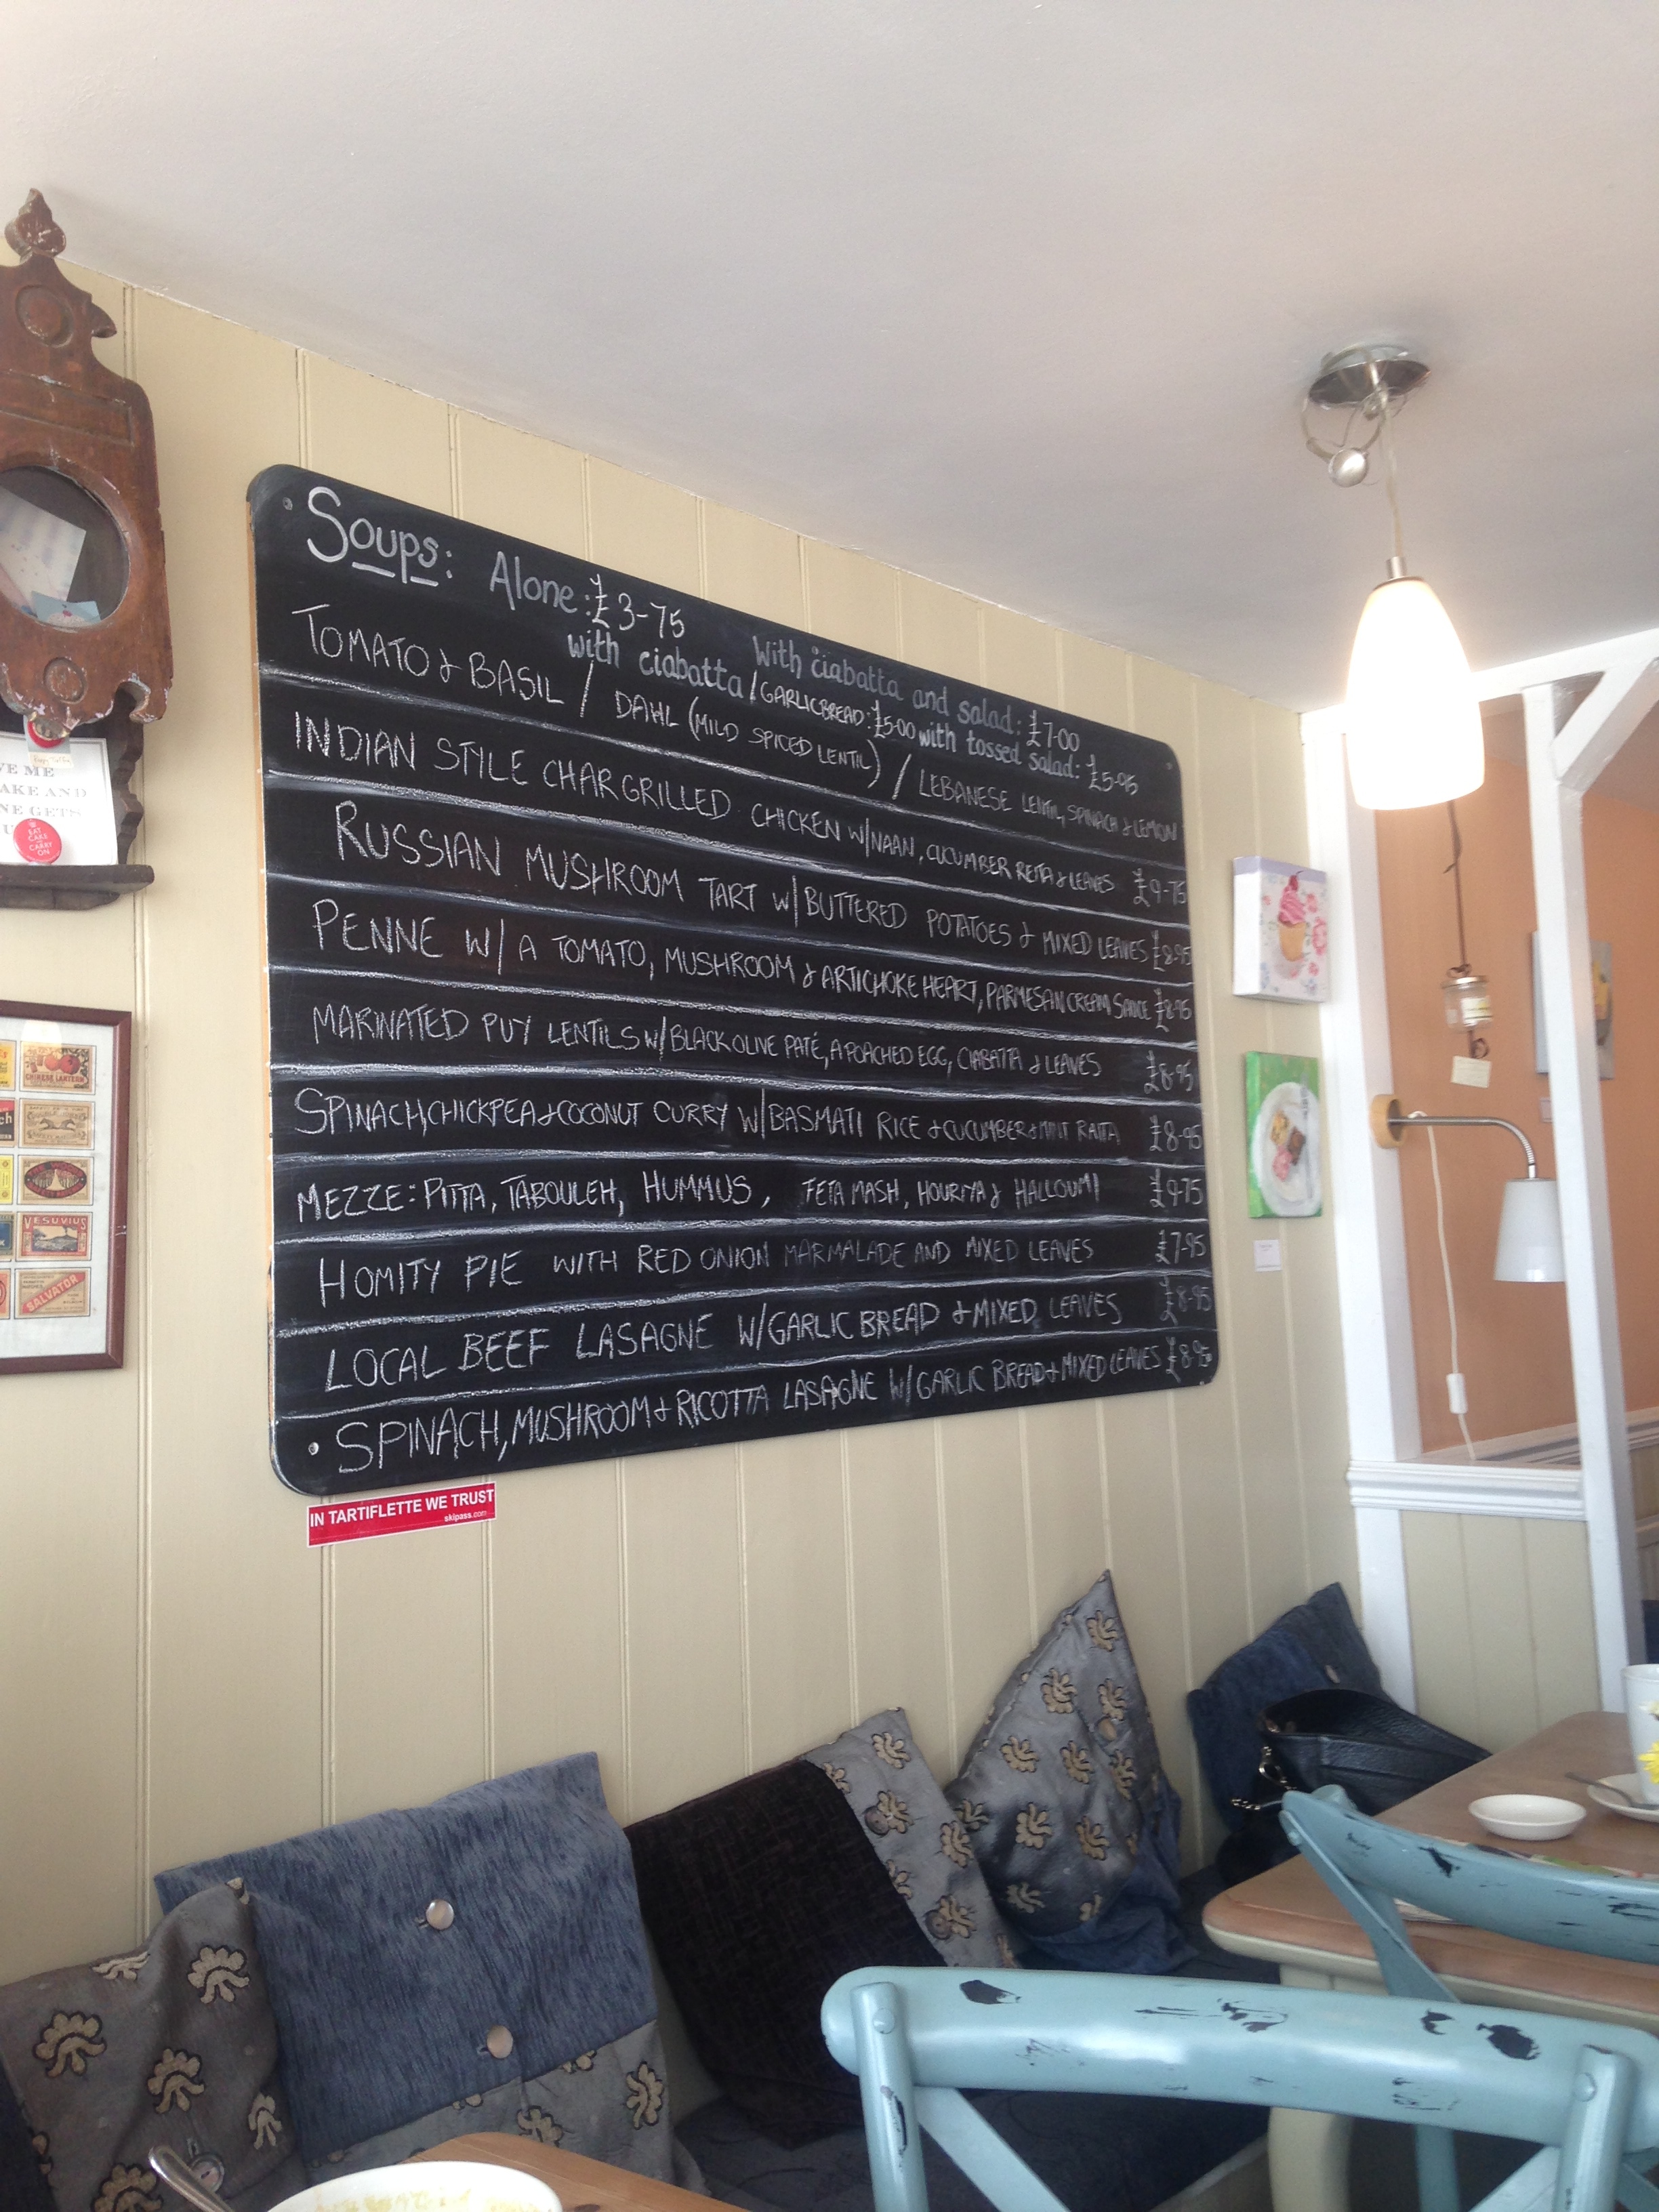 Soups: Alone: £3-75 With ciabatta and salad: £7-00
with ciabatta / GARLIC BREAD: £5-00 with tossed salad: £5-95
TOMATO & BASIL / DAHL (MILD SPICED LENTIL) / LEBANESE LENTIL, SPINACH & LEMON
INDIAN STYLE CHARGRILLED CHICKEN W/ NAAN, CUCUMBER REITA & LEAVES £9-75
RUSSIAN MUSHROOM TART W/ BUTTERED POTATOES & MIXED LEAVES £8-95
PENNE W/ A TOMATO, MUSHROOM & ARTICHOKE HEART, PARMESAN CREAM SAUCE £8-95
MARINATED PUY LENTILS W/ BLACK OLIVE PATÉ, A POACHED EGG, CIABATTA & LEAVES £8-95
SPINACH, CHICKPEA & COCONUT CURRY W/ BASMATI RICE & CUCUMBER & MINT RAITA £8-95
MEZZE: PITTA, TABOULEH, HUMMUS, FETA MASH, HOURIYA & HALLOUMI £9-75
HOMITY PIE WITH RED ONION MARMALADE AND MIXED LEAVES £7-95
LOCAL BEEF LASAGNE W/ GARLIC BREAD & MIXED LEAVES £8-95
SPINACH, MUSHROOM & RICOTTA LASAGNE W/ GARLIC BREAD & MIXED LEAVES £8-95
IN TARTIFLETTE WE TRUST
skipass.com
VE ME
AKE AND
NE GETS
U
EAT
CAKE
& CARRY
ON
CHINESE LANTERN
VESUVIUS
SALVATOR